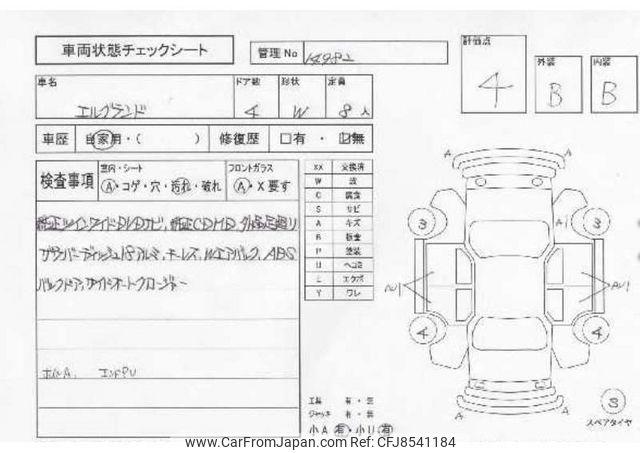 車両状態チェックシート
管理No 14982
評価点 4
外装 B
内装 B
車名 エルグランド
ドア数 4
形状 W
定員 8人
車歴 自家用・( )
修復歴 □有・☑無
検査事項
室内・シート
A・コゲ・穴・汚れ・破れ
フロントガラス
A・X要す
純正ツインワイドDVDナビ、純正CDMD、
18アルミ、キーレス、Wエアバック、ABS
バックドア、サイドオートクロージャー
XX 交換済
W 波
C 腐食
S サビ
A キズ
B 板金
P 塗装
U ヘコミ
E エクボ
Y ワレ
A
A
3
3
A1
AU1
AU1
4
4
A
A
3
スペアタイヤ
工具 有・無
ジャッキ 有・無
小A 有・小U 有
www.CarFromJapan.com | Ref. CFJ8541184